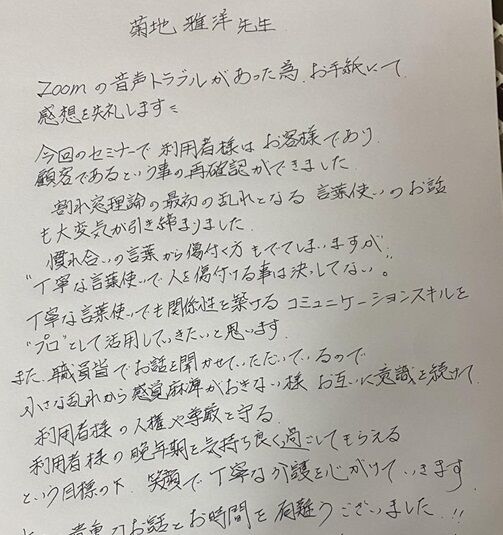 菊地 雅洋 先生
Zoomの音声トラブルがあった為 お手紙にて
感想を失礼します
今回のセミナーで 利用者様は お客様であり
顧客であるという事の再確認ができました
割れ窓理論の最初の乱れとなる 言葉使いのお話
も大変気が引き締まりました
慣れ合いの言葉から傷付く方もでてしまいますが
"丁寧な言葉使いで人を傷付ける事は決してない"
丁寧な言葉使いでも関係性を築けるコミュニケーションスキルを
"プロ"として活用していきたいと思います
また、職員皆でお話を聞かせていただいているので
小さな乱れから感覚麻痺がおきない様 お互いに意識を続けて
利用者様の人権や尊厳を守る
利用者様の晩年期を気持ち良く過ごしてもらえる
という目標の下 笑顔で丁寧な介護を心がけていきます
貴重なお話とお時間を有難うございました!!